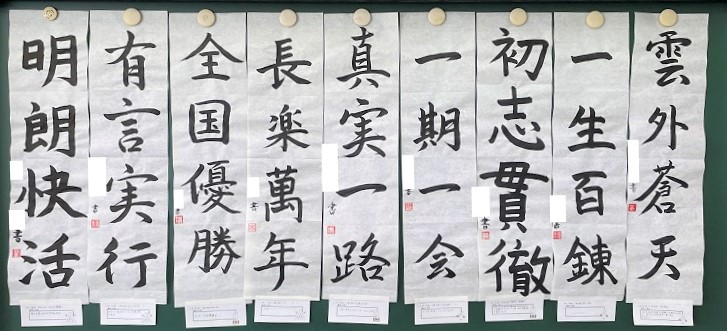 雲外蒼天
一生百錬
初志貫徹
一期一会
真実一路
長楽萬年
全国優勝
有言実行
明朗快活